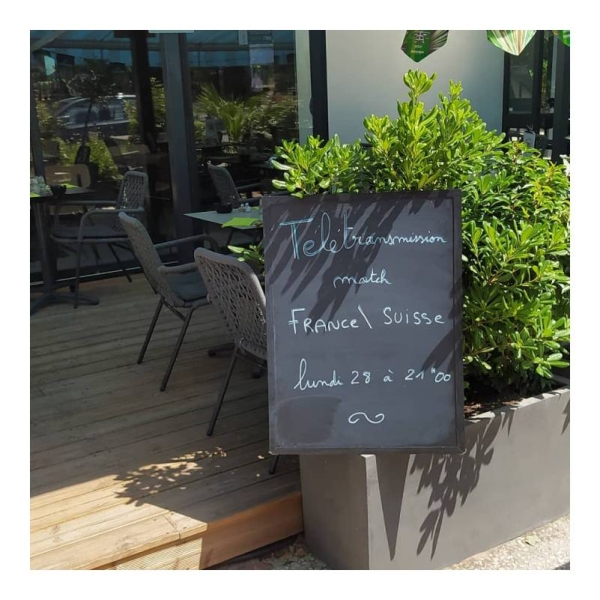 Télétransmission
match
FRANCE \ SUISSE
lundi 28 à 21 H 00